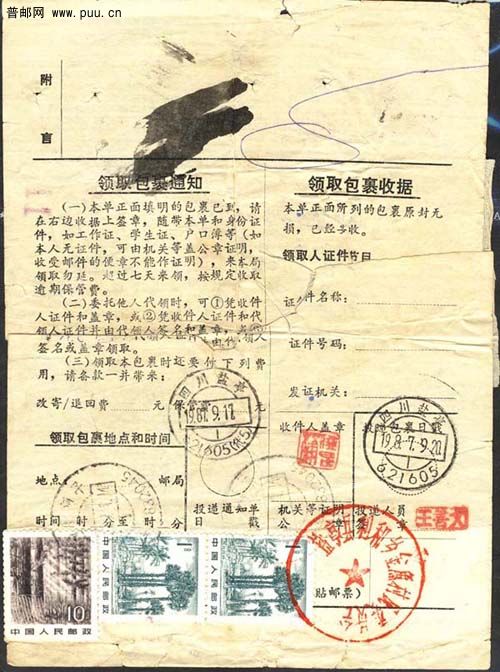 普邮网
www.puu.cn
附
言
领取包裹通知
(一)本单正面填明的包裹已到,请
在右边收据上签章,随带本单和身份证
件,如工作证、学生证、户口簿等(如
本人无证件,可由机关等盖公章证明,
收受邮件的便章不能作证明),来本局
领取勿延。超过七天来领,按规定收取
逾期保管费。
(二)委托他人代领时,可①凭收件
人证件和盖章,或②凭收件人证件和代
领人证件并由代领人签名和盖章,或③
签名或盖章领取。
(三)领取本包裹时还要付下列费
用,请备款一并带来:
改寄/退回费 元
元
领取包裹地点和时间
地点: 邮局
时间 时分至 时分
投递通知单
戳
领取包裹收据
本单正面所列的包裹原封无
损,已经妥收。
领取人证件节目
证件名称:
证件号码:
发证机关:
收件人盖章
投递包裹日戳
机关等证明
公章
投递人员
章
贴邮票)
四川盐亭
1987.9.17
1
621605(代5)
四川盐亭
1987.9.20
1
621605
10分
中国人民邮政
1分
中国人民邮政
1分
中国人民邮政